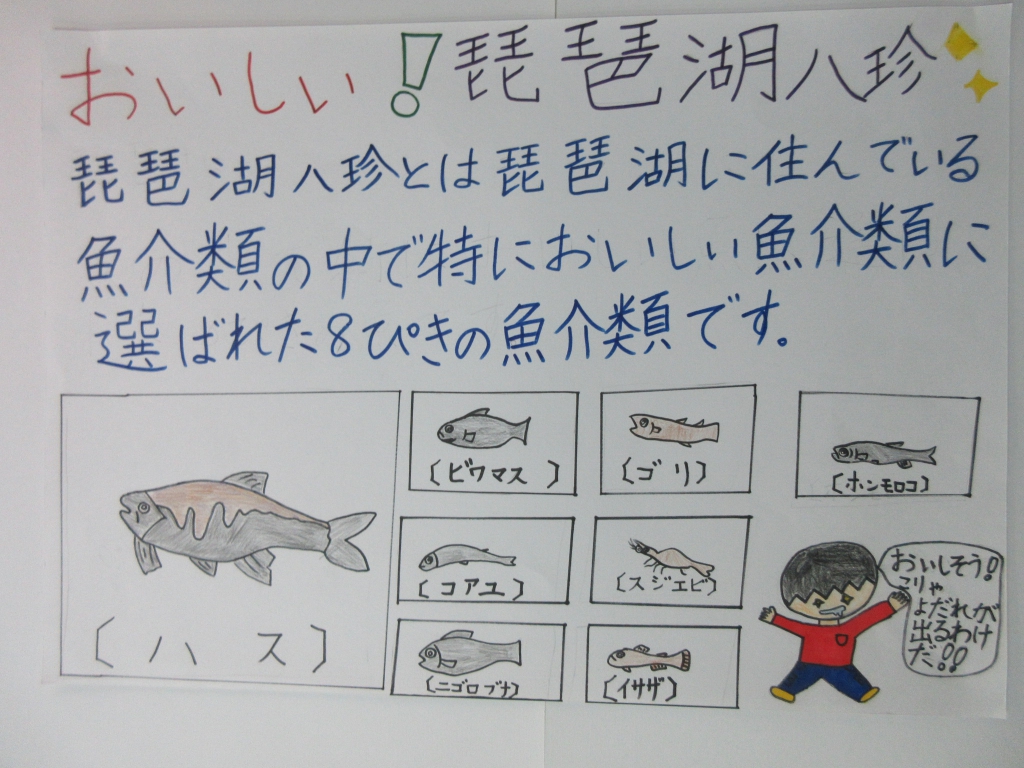 おいしい!琵琶湖八珍
琵琶湖八珍とは琵琶湖に住んでいる
魚介類の中で特においしい魚介類に
選ばれた8ぴきの魚介類です。
〔ハス〕
〔ビワマス〕
〔ゴリ〕
〔ホンモロコ〕
〔コアユ〕
〔スジエビ〕
〔ニゴロブナ〕
〔イサザ〕
おいしそう!
こりゃ
よだれが
出るわけ
だ!!